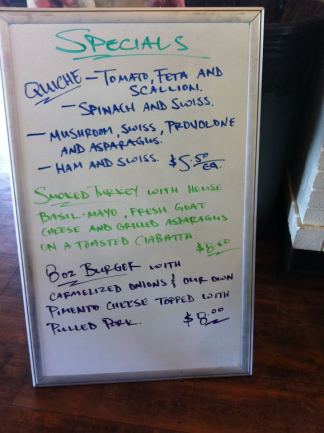 SPECIALS
QUICHE - TOMATO, FETA AND
SCALLION.
- SPINACH AND SWISS.
- MUSHROOM, SWISS, PROVOLONE
AND ASPARAGUS.
- HAM AND SWISS. $5.50 EA.
SMOKED TURKEY WITH HOUSE
BASIL-MAYO, FRESH GOAT
CHEESE AND GRILLED ASPARAGUS
ON A TOASTED CIABATTA.
$8.00
8OZ BURGER WITH
CARMELIZED ONIONS & OUR OWN
PIMENTO CHEESE TOPPED WITH
PULLED PORK. $8.00